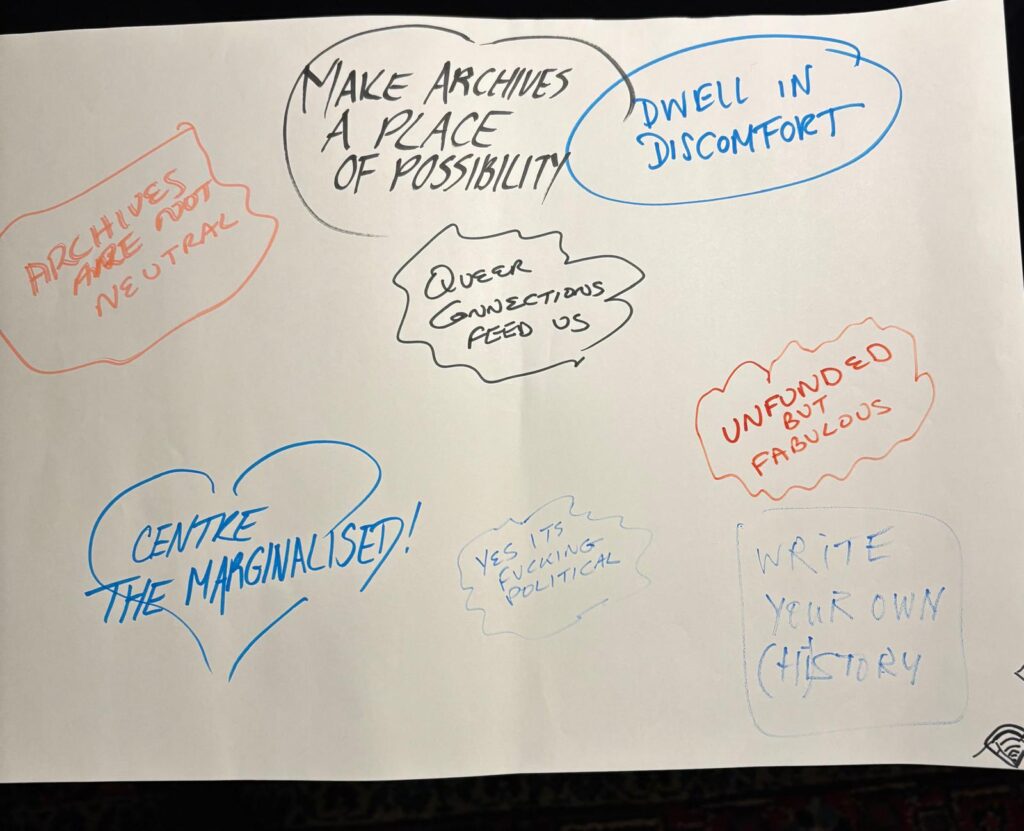 MAKE ARCHIVES
A PLACE
OF POSSIBILITY
DWELL IN
DISCOMFORT
ARCHIVES
ARE NOT
NEUTRAL
QUEER
CONNECTIONS
FEED US
UNFUNDED
BUT
FABULOUS
CENTRE
THE MARGINALISED!
YES ITS
FUCKING
POLITICAL
WRITE
YOUR OWN
(HI)STORY